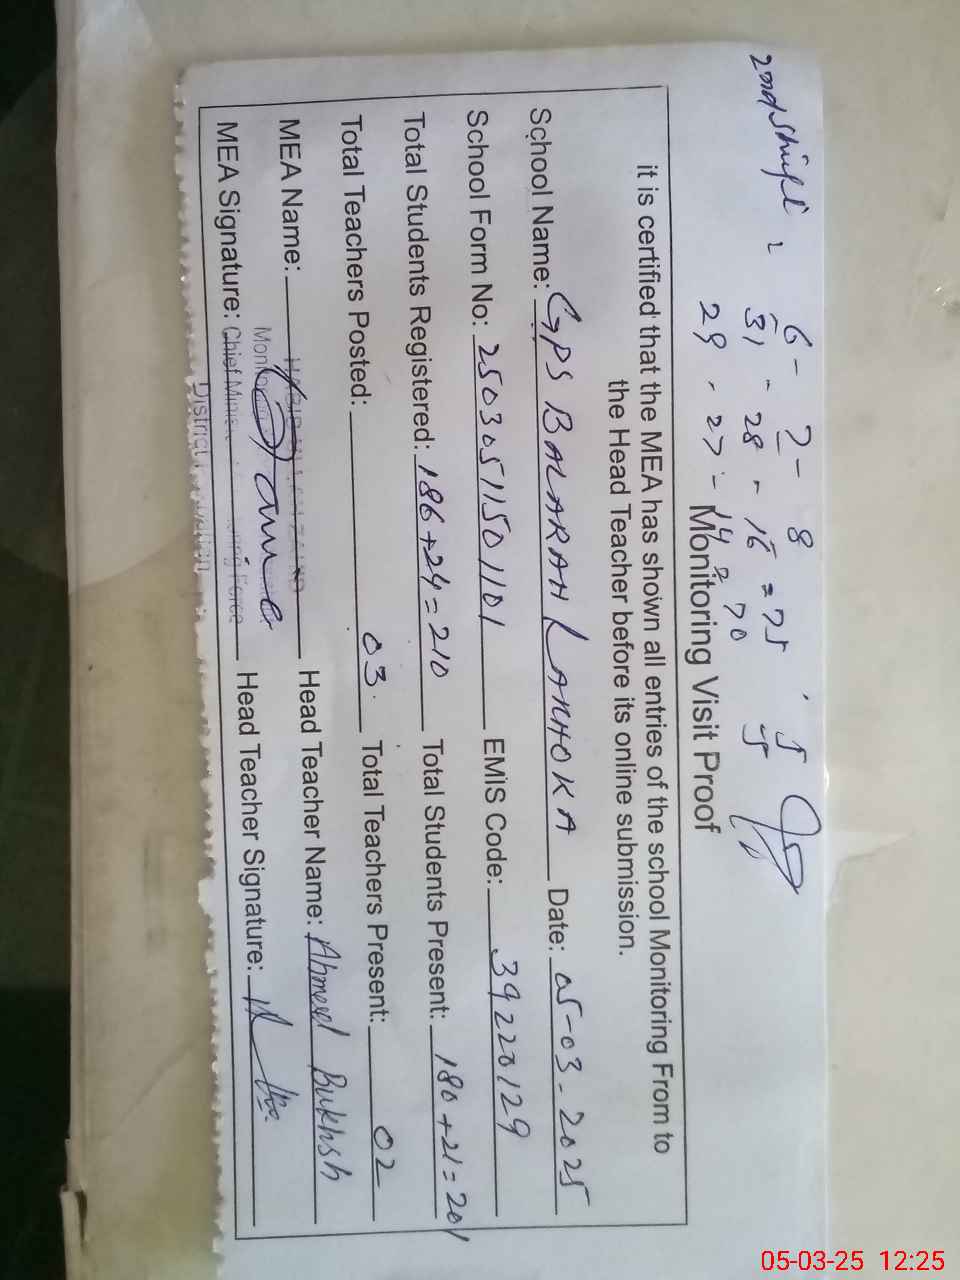 2nd Shift
6 - 7 - 8
31 - 28 - 16 = 75
29 - 27 - 14 = 70
Monitoring Visit Proof
it is certified that the MEA has shown all entries of the school Monitoring From to
the Head Teacher before its online submission.
School Name: GPS BALARAH LANHOKA Date: 05-03-2025
School Form No: 25030511501101 EMIS Code: 39220129
Total Students Registered: 186+24=210 Total Students Present: 180+21=201
Total Teachers Posted: 03 Total Teachers Present: 02
MEA Name: Head Teacher Name: Ahmed Bukhsh
MEA Signature: Head Teacher Signature:
Chief Minis
Force
District
05-03-25 12:25